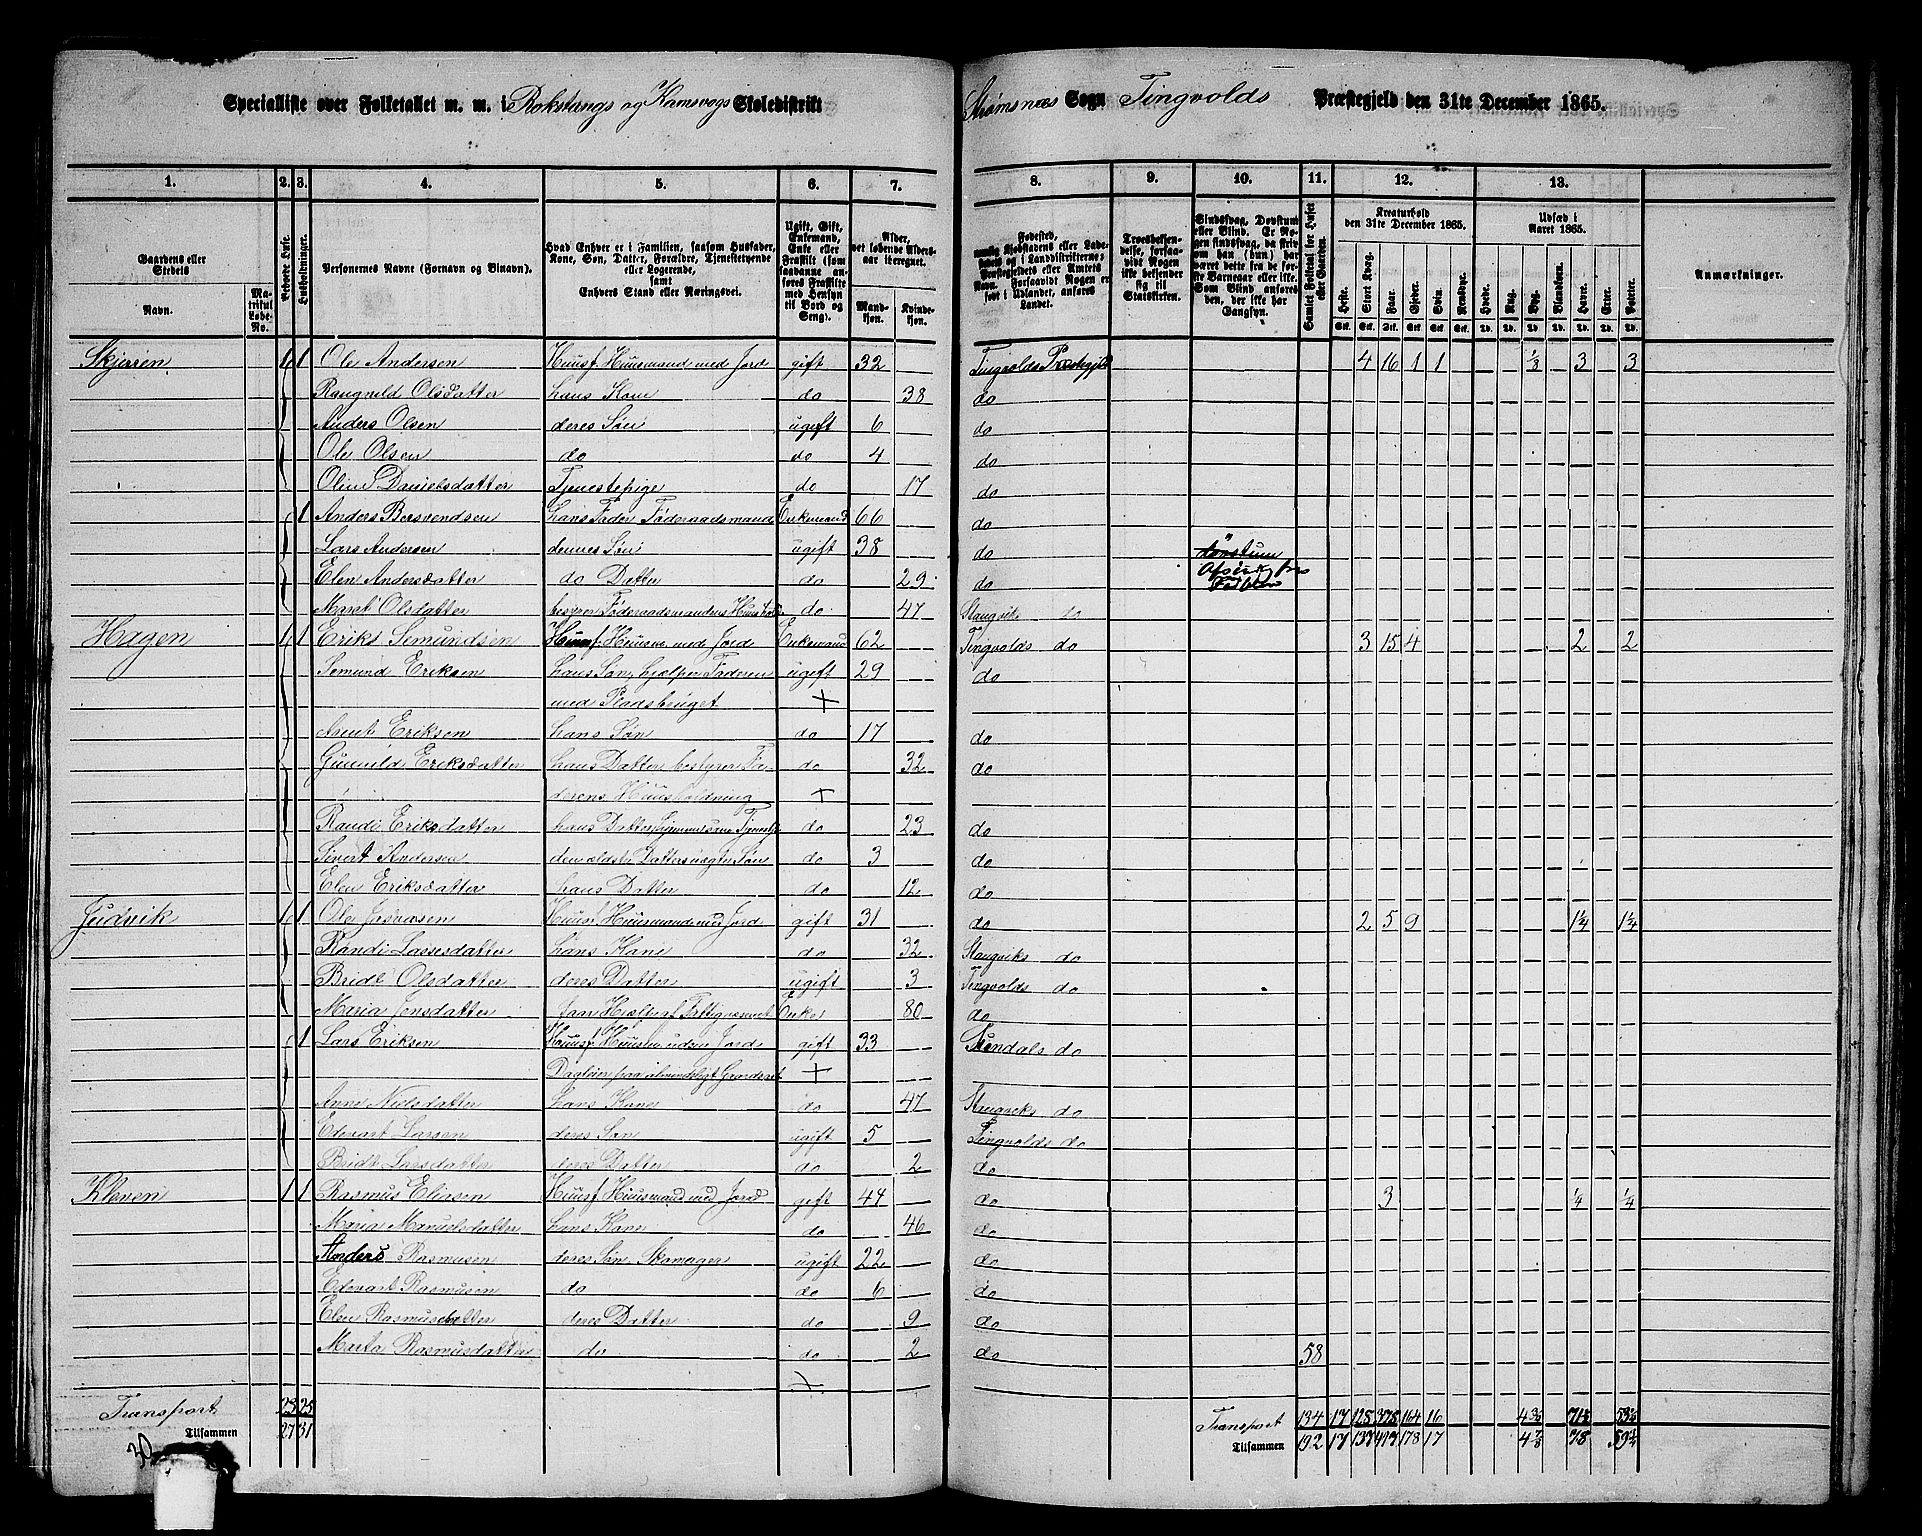 Specialliste over Folketallet m. m. i Rokstangs og Kamsvogs Skoledistrikt Strømsnæs Sogn Tingvolds Præstegjeld den 31te December 1865.
1. 2. 3. 4. 5. 6. 7. 8. 9. 10. 11. 12. 13.
Gaardens eller Stedets
Navn. Matrikul Løbe-No.
Beboede Huse.
Husholdninger.
Personernes Navne (Fornavn og Binavn).
Hvad Enhver er i Familien, saasom Husfader, Kone, Søn, Datter, Forældre, Tjenestetyende eller Logerende, samt Enhvers Stand eller Næringsvei.
Ugift, Gift, Enkemand, Enke eller Fraskilt (som saadanne anføres Fraskilte med Hensyn til Bord og Seng).
Alder, det løbende Alders-aar iberegnet.
Mandkjøn. Kvindekjøn.
Samlet Folketal for Huset eller Gaarden.
Kreaturhold den 31te December 1865.
Heste. Stort Kvæg. Faar. Gjeder. Svin. Rensdyr.
Udsæd i Aaret 1865.
Hvede. Rug. Byg. Blandkorn. Havre. Erter. Poteter.
Anmærkninger.
Skjørren 1 1 Ole Andersen Huusf. Huusmand med Jord gift 32 Tingvolds Præstegjeld 4 16 1 1 1/8 3 3
Rangnild Olsdatter hans Kone do 38 do
Anders Olsen deres Søn ugift 6 do
Ole Olsen do do 4 do
Olin Danielsdatter Tjenestepige do 17 do
1 Anders Bersvendsen hans Fader Føderaadsmand Enkemand 66 do
Lars Andersen dennes Søn ugift 38 do døvstum
Elen Andersdatter do Datter do 29 do
Marit Olsdatter bestyrer Føderaadsmandens Huushold. do 47 Stangviks do
Hagen 1 1 Eriks Semundsen Huusf. Huusm. med Jord Enkemand 62 Tingvolds do 3 15 4 2 2
Semund Eriksen hans Søn, hjælper Faderen ugift 29 do
med Pladsbruget +
Arent Eriksen hans Søn do 17 do
Gunnild Eriksdatter hans Datter bestyrer Fa- do 32 do
derens Huusholdning +
Randi Eriksdatter hans Datter do 23 do
Sivert Andersen den ældste Datters uægte Søn do 3 do
Elen Eriksdatter hans Datter do 12 do
Judvik 1 1 Ole Huusf. Huusmand med Jord gift 31 do 2 5 9 1 1/4 1 1/4
Randi Lassesdatter hans Kone do 32 Stangviks do
Bridt Olsdatter deres Datter ugift 3 Tingvolds do
Maria Jonsdatter faar Hjælp af Fattigvæsenet Enke 80 do
1 Lars Eriksen Huusf. Huusm. uden Jord gift 33 Sundals do
Dagleier paa almindeligt Gaardsarb. +
Anne Nielsdatter hans Kone do 47 Stangviks do
Edevart Larsen deres Søn ugift 5 Tingvolds do
Bridt Larsdatter deres Datter do 2 do
Kleven 1 1 Rasmus Eliasen Huusf. Huusmand med Jord gift 44 do 3 1/4 1/4
Maria Manuelsdatter hans Kone do 46 do
Anders Rasmusen deres Søn, Skomager ugift 22 do
Edevart Rasmusen do do 6 do
Elen Rasmusdatter deres Datter do 9 do
Marta Rasmusdatter do do 2 do 58
+
Transport 23 25 Transport 134 17 128 378 164 16 4 3/4 71 1/2 53 1/4
Tilsammen 27 31 Tilsammen 192 17 137 417 178 17 4 7/8 78 59 3/4
30